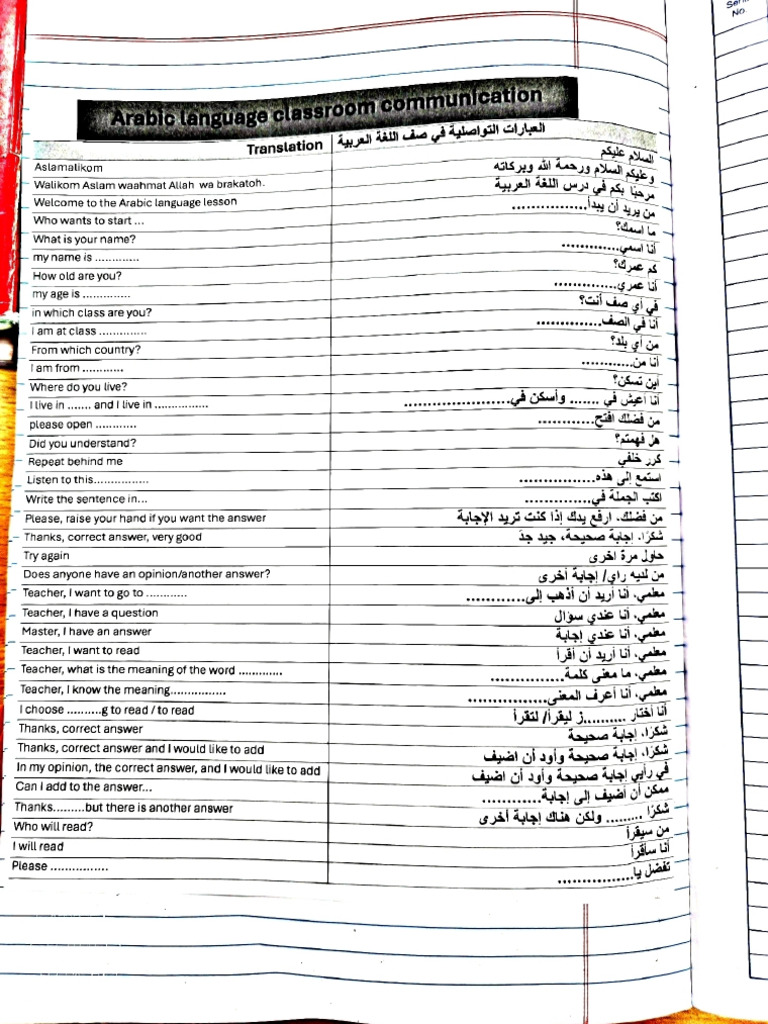 Serial
No.
Arabic language classroom communication
Translation العبارات التواصلية في صف اللغة العربية
Aslamalikom السلام عليكم
Walikom Aslam waahmat Allah wa brakatoh. وعليكم السلام ورحمة الله وبركاته
Welcome to the Arabic language lesson مرحبًا بكم في درس اللغة العربية
Who wants to start ... من يريد أن يبدأ................
What is your name? ما اسمك؟
my name is ............. أنا اسمي.............
How old are you? كم عمرك؟
my age is .............. أنا عمري..............
in which class are you? في أي صف أنت؟
I am at class .............. أنا في الصف..............
From which country? من أي بلد؟
I am from ............ أنا من............
Where do you live? أين تسكن؟
I live in ....... and I live in ................ أنا أعيش في ....... وأسكن في.......................
please open ............ من فضلك افتح............
Did you understand? هل فهمتم؟
Repeat behind me كرر خلفي
Listen to this................ استمع إلى هذه................
Write the sentence in... اكتب الجملة في..............
Please, raise your hand if you want the answer من فضلك. ارفع يدك إذا كنت تريد الإجابة
Thanks, correct answer, very good شكرًا. إجابة صحيحة، جيد جدَ
Try again حاول مرة اخرى
Does anyone have an opinion/another answer? من لديه راي/ إجابة أخرى
Teacher, I want to go to ............ معلمي، أنا أريد أن أذهب إلى............
Teacher, I have a question معلمي، أنا عندي سؤال
Master, I have an answer معلمي، أنا عندي إجابة
Teacher, I want to read معلمي، أنا أريد أن أقرأ
Teacher, what is the meaning of the word ............. معلمي، ما معنى كلمة...............
Teacher, I know the meaning................ معلمي، أنا أعرف المعنى................
I choose ..........g to read / to read أنا أختار ..........ز ليقرأ/ لتقرأ
Thanks, correct answer شكرًا، إجابة صحيحة
Thanks, correct answer and I would like to add شكرًا، إجابة صحيحة وأود أن اضيف
In my opinion, the correct answer, and I would like to add في رأيي إجابة صحيحة وأود أن اضيف
Can I add to the answer... ممكن أن أضيف إلى إجابة............
Thanks.........but there is another answer شكرًا ......... ولكن هناك إجابة أخرى
Who will read? من سيقرأ
I will read أنا سأقرأ
Please ................ تفضل يا................